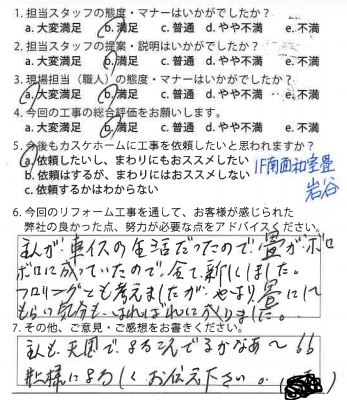 1. 担当スタッフの態度・マナーはいかがでしたか?
a. 大変満足 b. 満足 c. 普通 d. やや不満 e. 不満
2. 担当スタッフの提案・説明はいかがでしたか?
a. 大変満足 b. 満足 c. 普通 d. やや不満 e. 不満
3. 現場担当(職人)の態度・マナーはいかがでしたか?
a. 大変満足 b. 満足 c. 普通 d. やや不満 e. 不満
4. 今回の工事の総合評価をお願いします。
a. 大変満足 b. 満足 c. 普通 d. やや不満 e. 不満
5. 今後もカスケホームに工事を依頼したいと思われますか?
a. 依頼したいし、まわりにもおススメしたい
b. 依頼はするが、まわりにはおススメしない
c. 依頼するかはわからない
1F南面和室畳
岩谷
6. 今回のリフォーム工事を通して、お客様が感じられた
弊社の良かった点、努力が必要な点をアドバイスください。
主人が車イスの生活だったので、畳がボロ
ボロに成っていたので、全て新にしました。
フロリングとも考えましたが、やはり畳にして
もらい気分も、はればれに成りました。
7. その他、ご意見・ご感想をお書きください。
主人も天国で、よろこんでるかなあ〜!!
皆様によろしくお伝え下さい。